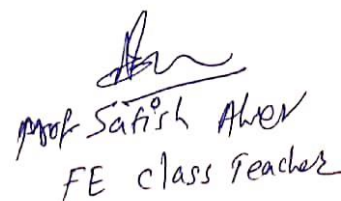 Prof Satish Aher
FE class Teacher